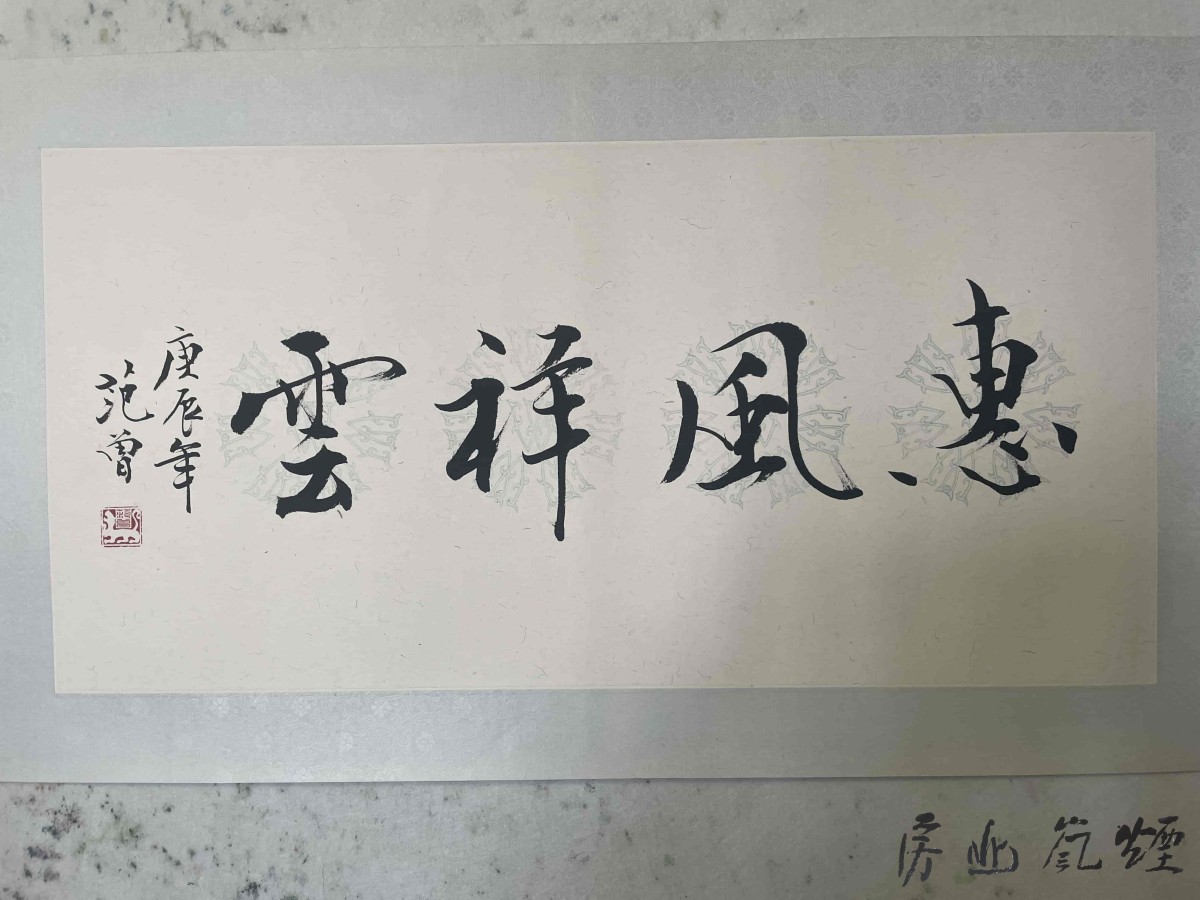 惠風祥雲
庚辰年
范曾